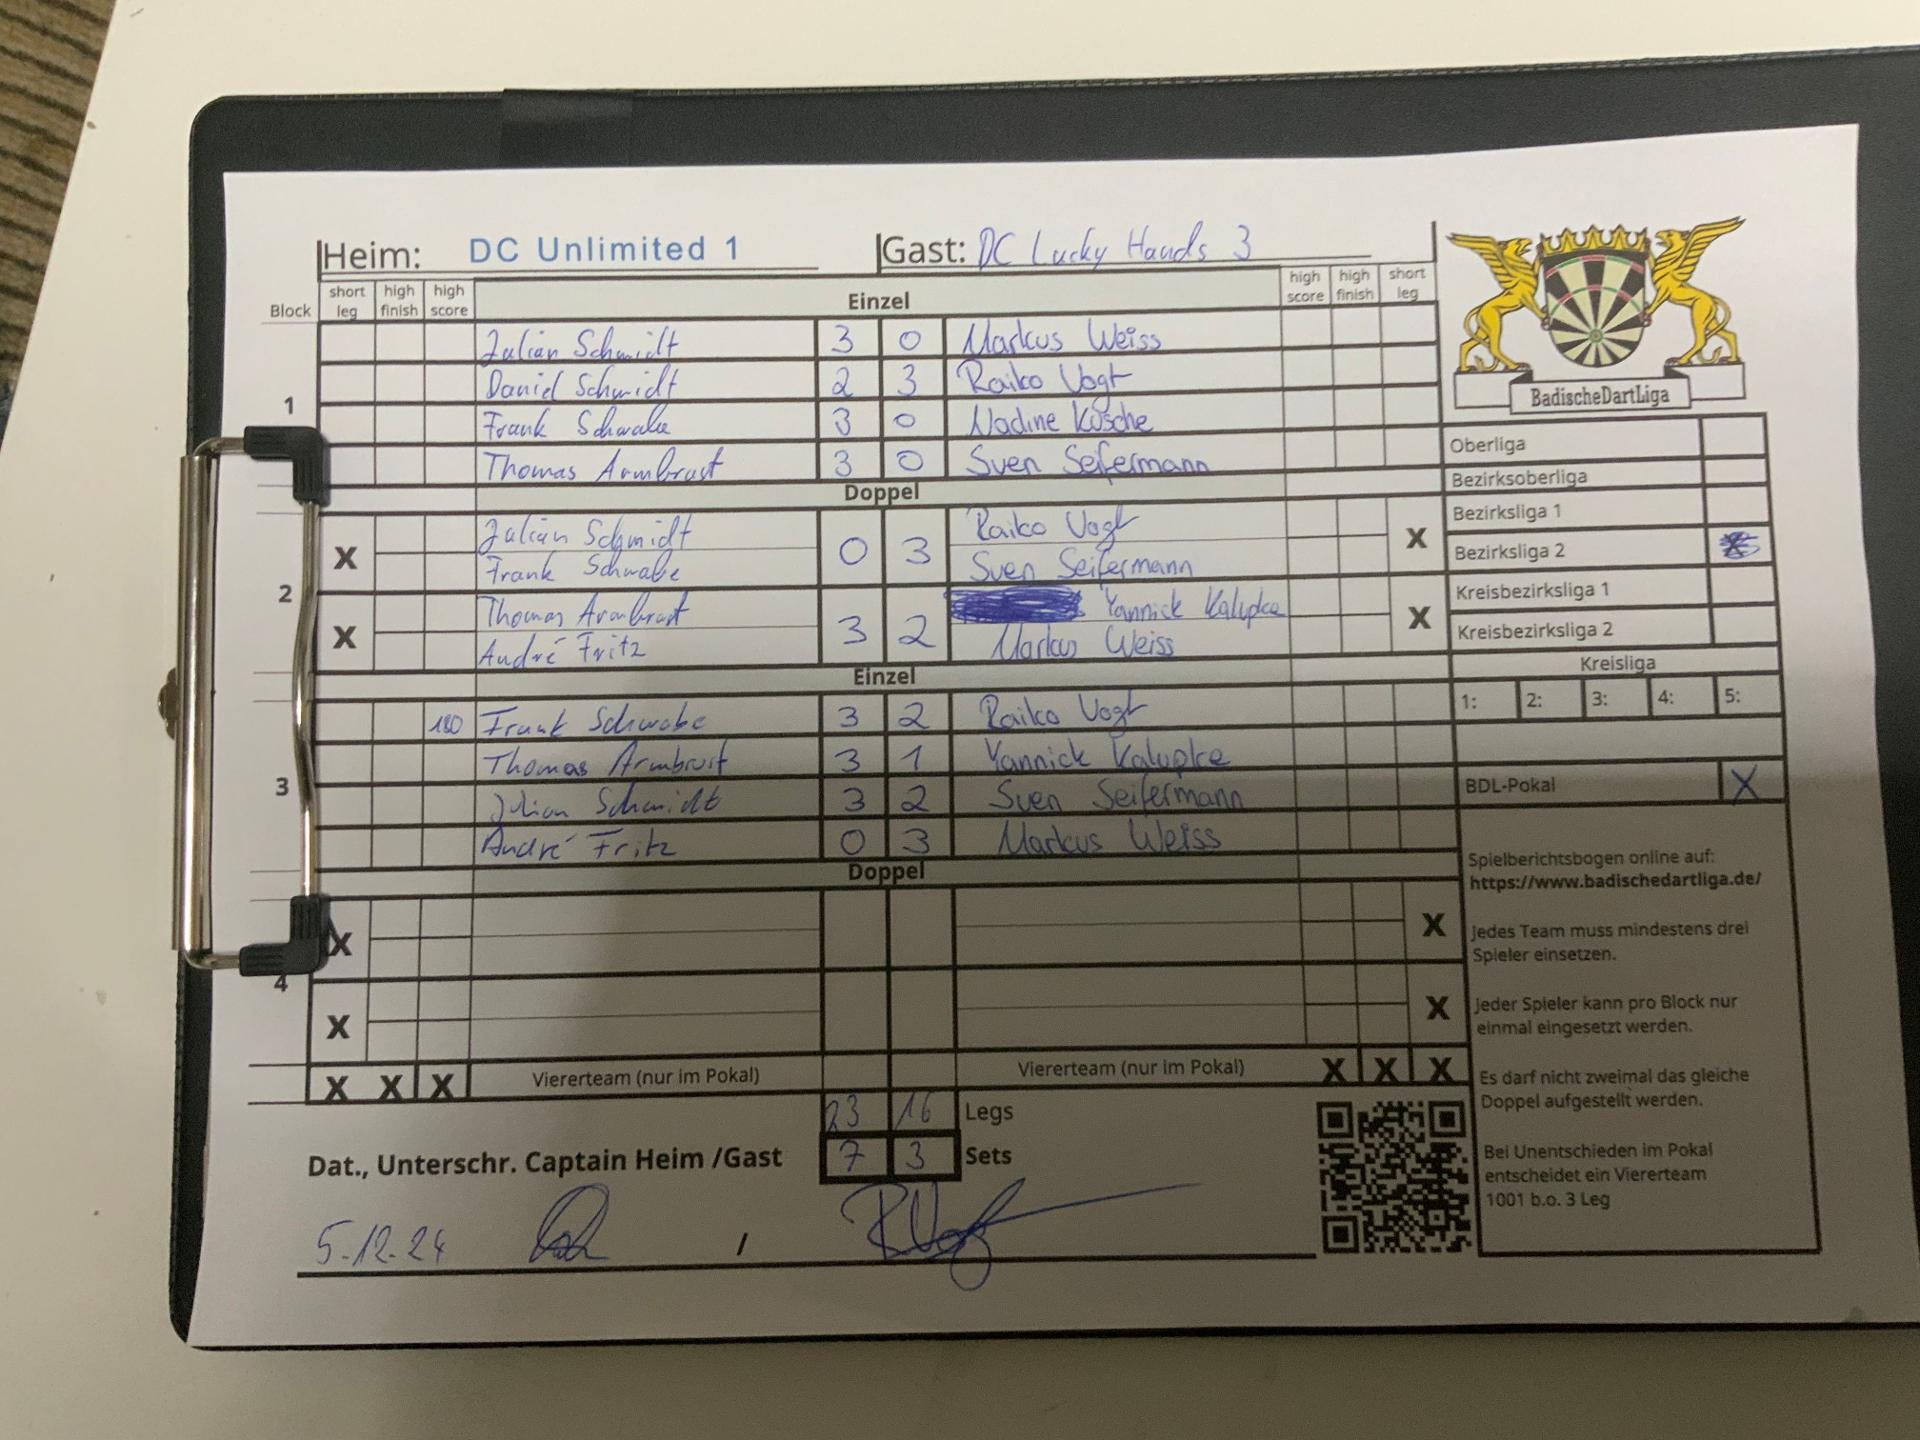 Heim: DC Unlimited 1 Gast: DC Lucky Hands 3
Block short leg high finish high score Einzel high score high finish short leg
1
Julian Schmidt 3 0 Markus Weiss
Daniel Schmidt 2 3 Raiko Vogt
Frank Schwabe 3 0 Nadine Kusche
Thomas Armbrust 3 0 Sven Seifermann
Doppel
2
X Julian Schmidt 0 3 Raiko Vogt X
Frank Schwabe Sven Seifermann
X Thomas Armbrust 3 2 Yannick Kalupke X
André Fritz Markus Weiss
Einzel
3
180 Frank Schwabe 3 2 Raiko Vogt
Thomas Armbrust 3 1 Yannick Kalupke
Julian Schmidt 3 2 Sven Seifermann
André Fritz 0 3 Markus Weiss
Doppel
X X
4
X X
X X X Viererteam (nur im Pokal) Viererteam (nur im Pokal) X X X
23 16 Legs
7 3 Sets
Dat., Unterschr. Captain Heim /Gast
5.12.24 /
BadischeDartLiga
Oberliga
Bezirksoberliga
Bezirksliga 1
Bezirksliga 2
Kreisbezirksliga 1
Kreisbezirksliga 2
Kreisliga
1: 2: 3: 4: 5:
BDL-Pokal X
Spielberichtsbogen online auf:
https://www.badischedartliga.de/
Jedes Team muss mindestens drei
Spieler einsetzen.
Jeder Spieler kann pro Block nur
einmal eingesetzt werden.
Es darf nicht zweimal das gleiche
Doppel aufgestellt werden.
Bei Unentschieden im Pokal
entscheidet ein Viererteam
1001 b.o. 3 Leg